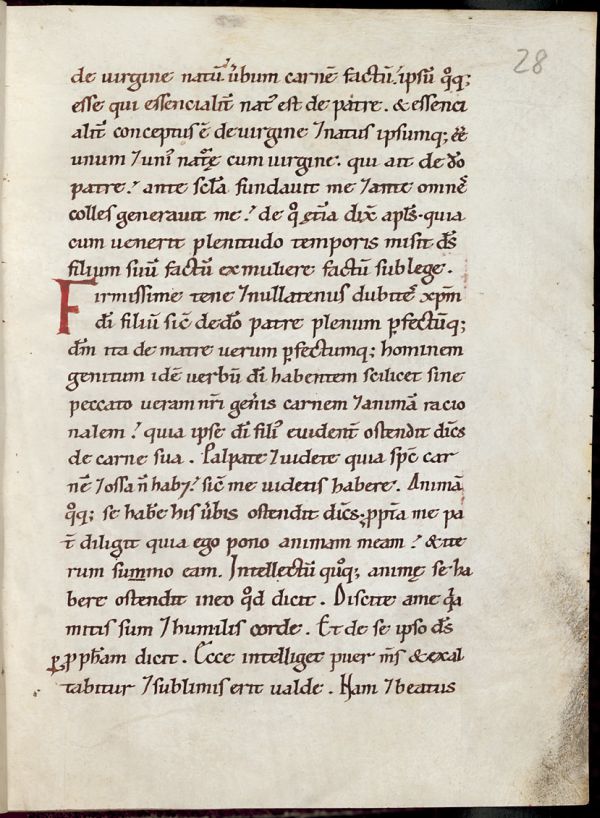 28
de uirgine natū. ūbum carnē factū. ipsū q̄q;
esse qui essencialit̄ nat᷒ est de patre. & essenci
alit̄ conceptus ē de uirgine ⁊ natus ipsumq; eē
unum ⁊ uni᷒ nat̄ę cum uirgine. qui ait de do᷒
patre. ante sc̄la fundauit me ⁊ ante omnē
colles generauit me. de q᷒ etiā dix̄ ap̄ls. quia
cum uenerit plenitudo temporis misit d̄s
filium suū factū ex muliere factū sub lege.
Firmissime tene ⁊ nullatenus dubites xp̄m
dī filiū sic̄ de dō patre plenum ꝑfectūq;
dm̄ ita de matre uerum ꝑfectumq; hominem
genitum idē uerbū dī habentem scilicet sine
peccato ueram nr̄i gen̄is carnem ⁊ animā racio
nalem. quia ipse dī fili᷒ euident̄ ostendit dic̄s
de carne sua. Palpate ⁊ uidete quia sp̄c car
nē ⁊ ossa n̄ hab; sic̄ me uidetis habere. Animā
q̄q; se habe᷒ his ūbis ostendit dic̄s. ꝓpt̄a me pa
t̄ diligit quia ego pono animam meam. & ite
rum summo eam. Intellectū quoq; animę se ha
bere ostendit in eo q̄d dicit. Discite a me q̄a
mitis sum ⁊ humilis corde. Et de se ipso d̄s
ꝑ ꝓph̄am dicit. Ecce intelliget puer m̄s & exal
tabitur ⁊ sublimis erit ualde. Nam ⁊ beatus